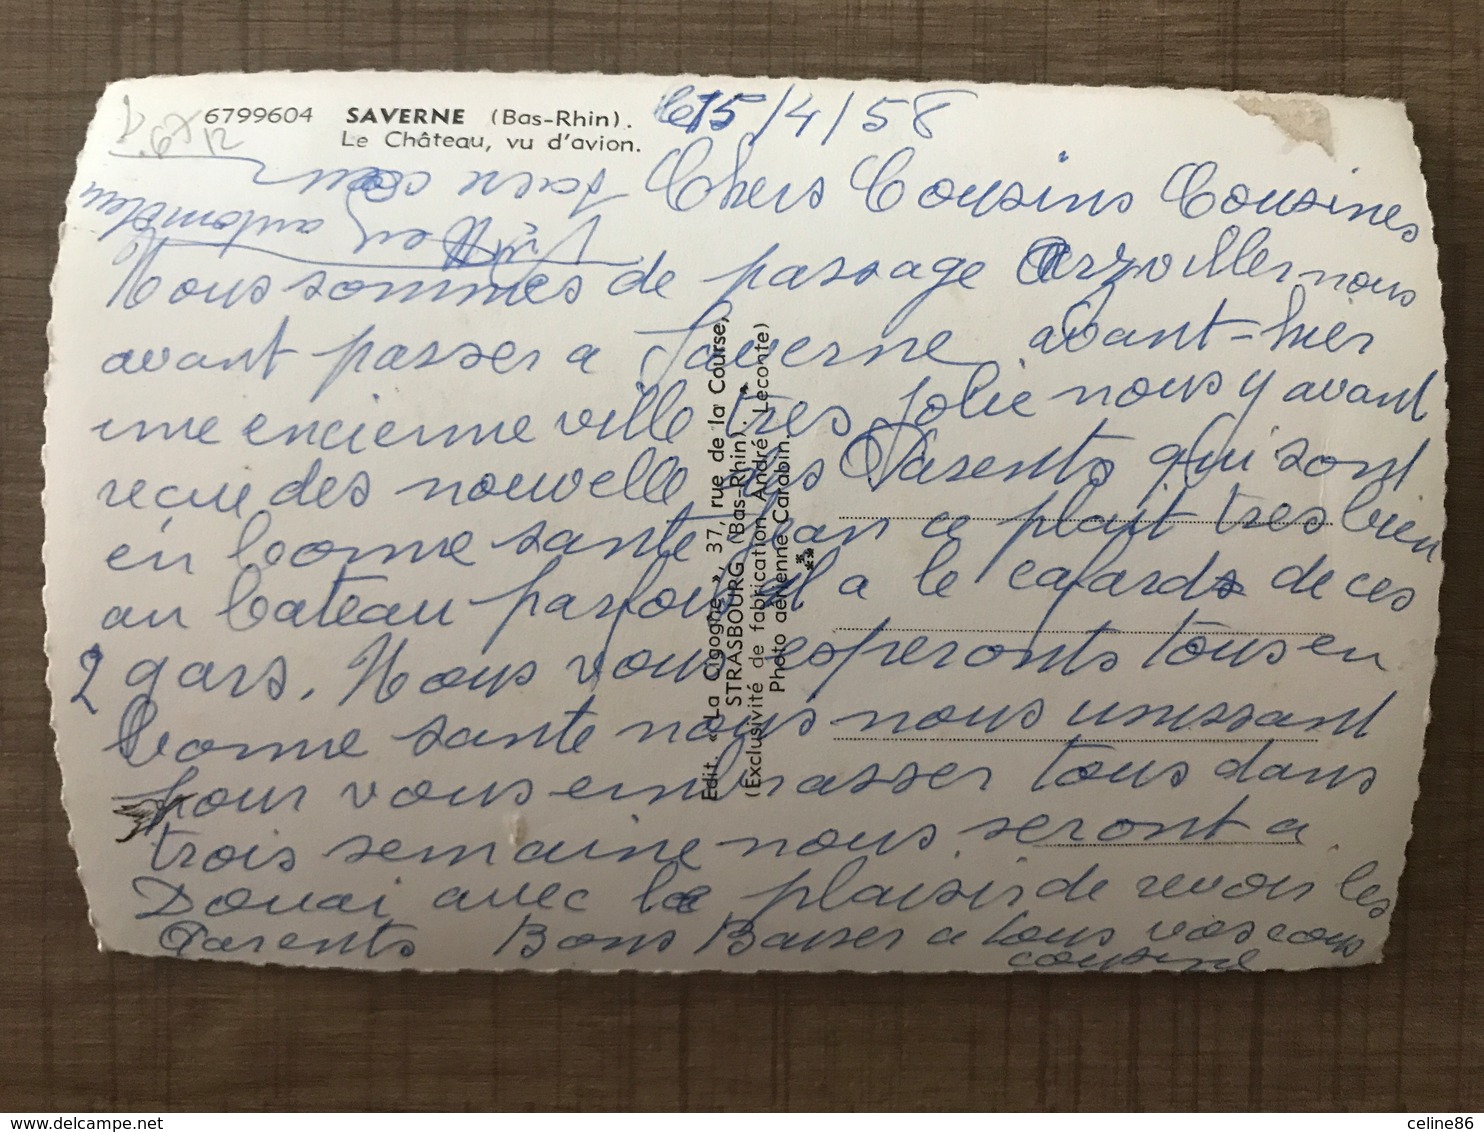 6799604 SAVERNE (Bas-Rhin).
Le Château, vu d'avion.
le 15/4/58
Chers Cousins Cousines
Nous sommes de passage Arzviller nous
avant passer a Saverne avant-hier
une encienne ville tres jolie nous y avant
reçue des nouvelle des Parents qui sont
en bonne sante Jean ce plait tres bien
au bateau parfois il a le cafard de ces
2 gars. Nous vous esperonts tous en
bonne sante nous nous unissant
pour vous embrasser tous dans
trois semaine nous seront a
Douai avec le plaisir de revoir les
Parents Bons Baiser a tous vos cous
cousine
Edit. « La Cigogne », 37, rue de la Course,
STRASBOURG (Bas-Rhin).
(Exclusivité de fabrication André Leconte)
Photo aérienne Carabin.
celine86